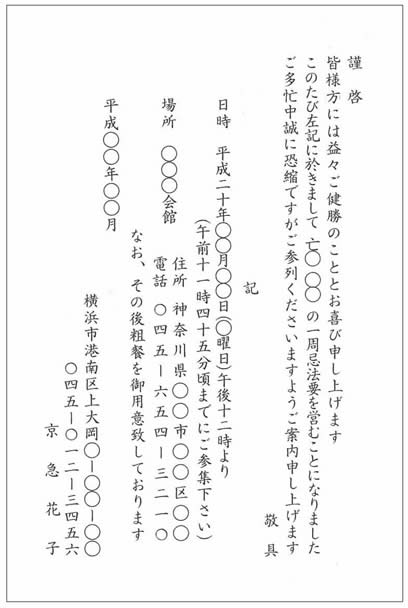 謹啓
皆様方には益々ご健勝のこととお喜び申し上げます
このたび左記に於きまして 亡〇 〇〇〇 の一周忌法要を営むことになりました
ご多忙中誠に恐縮ですがご参列くださいますようご案内申し上げます
敬具
記
日時 平成二十年〇〇月〇〇日(〇曜日)午後十二時より
(午前十一時四十五分頃までにご参集下さい)
場所 〇〇〇会館
住所 神奈川県〇〇市〇〇区〇〇
電話 〇四五ー六五四ー三二一〇
なお、その後粗餐を御用意致しております
平成〇〇年〇〇月
横浜市港南区上大岡〇ー〇〇ー〇〇
〇四五ー〇一二ー三四五六
京急花子